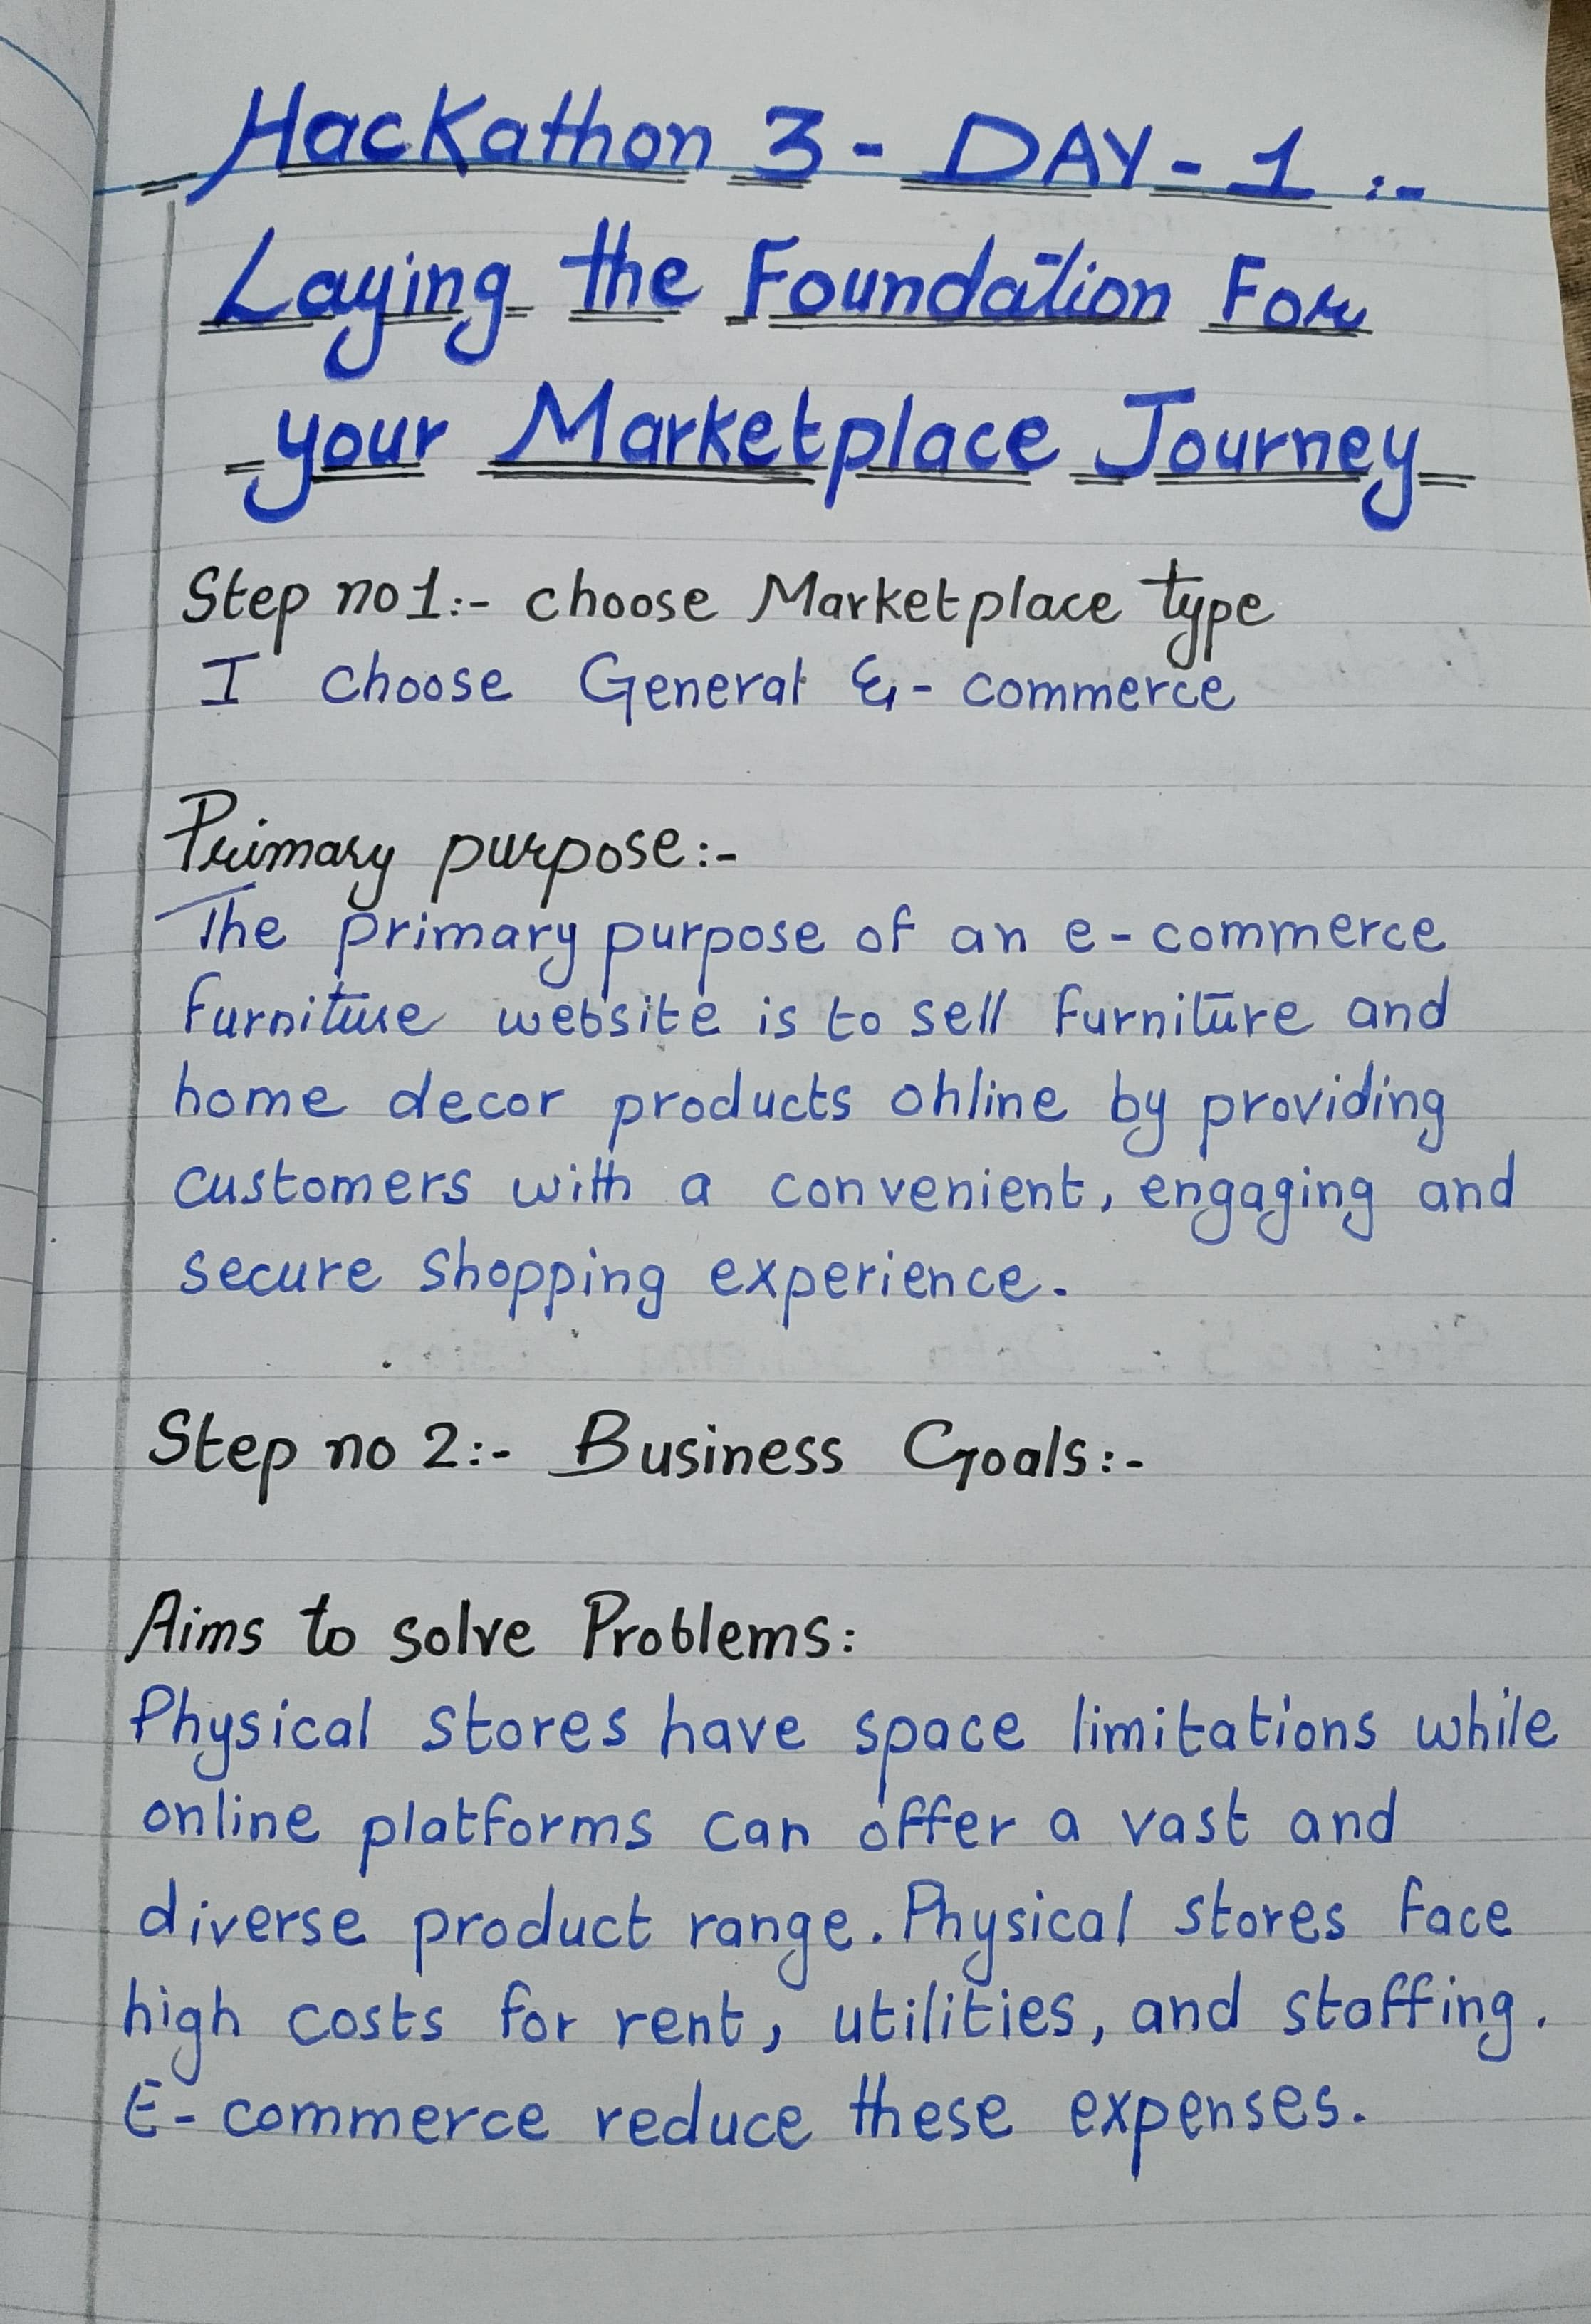 Hackathon 3 - DAY - 1 :-
Laying the Foundation For
your Marketplace Journey
Step no 1:- choose Marketplace type
I choose General E-commerce
Primary purpose:-
The primary purpose of an e-commerce
furniture website is to sell furniture and
home decor products online by providing
customers with a convenient, engaging and
secure shopping experience.
Step no 2:- Business Goals:-
Aims to solve Problems:
Physical stores have space limitations while
online platforms can offer a vast and
diverse product range. Physical stores face
high costs for rent, utilities, and staffing.
E-commerce reduce these expenses.